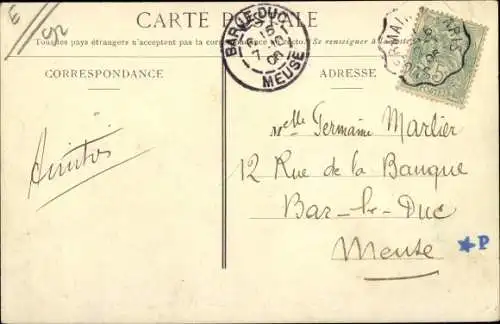 CARTE POSTALE
Tous les pays étrangers n'acceptent pas la correspondance au recto. Se renseigner à la poste
CORRESPONDANCE
ADRESSE
BAR-LE-DUC
MEUSE
Amitiés
Melle Germaine Marlier
12 Rue de la Banque
Bar-le-Duc
Meuse
*P